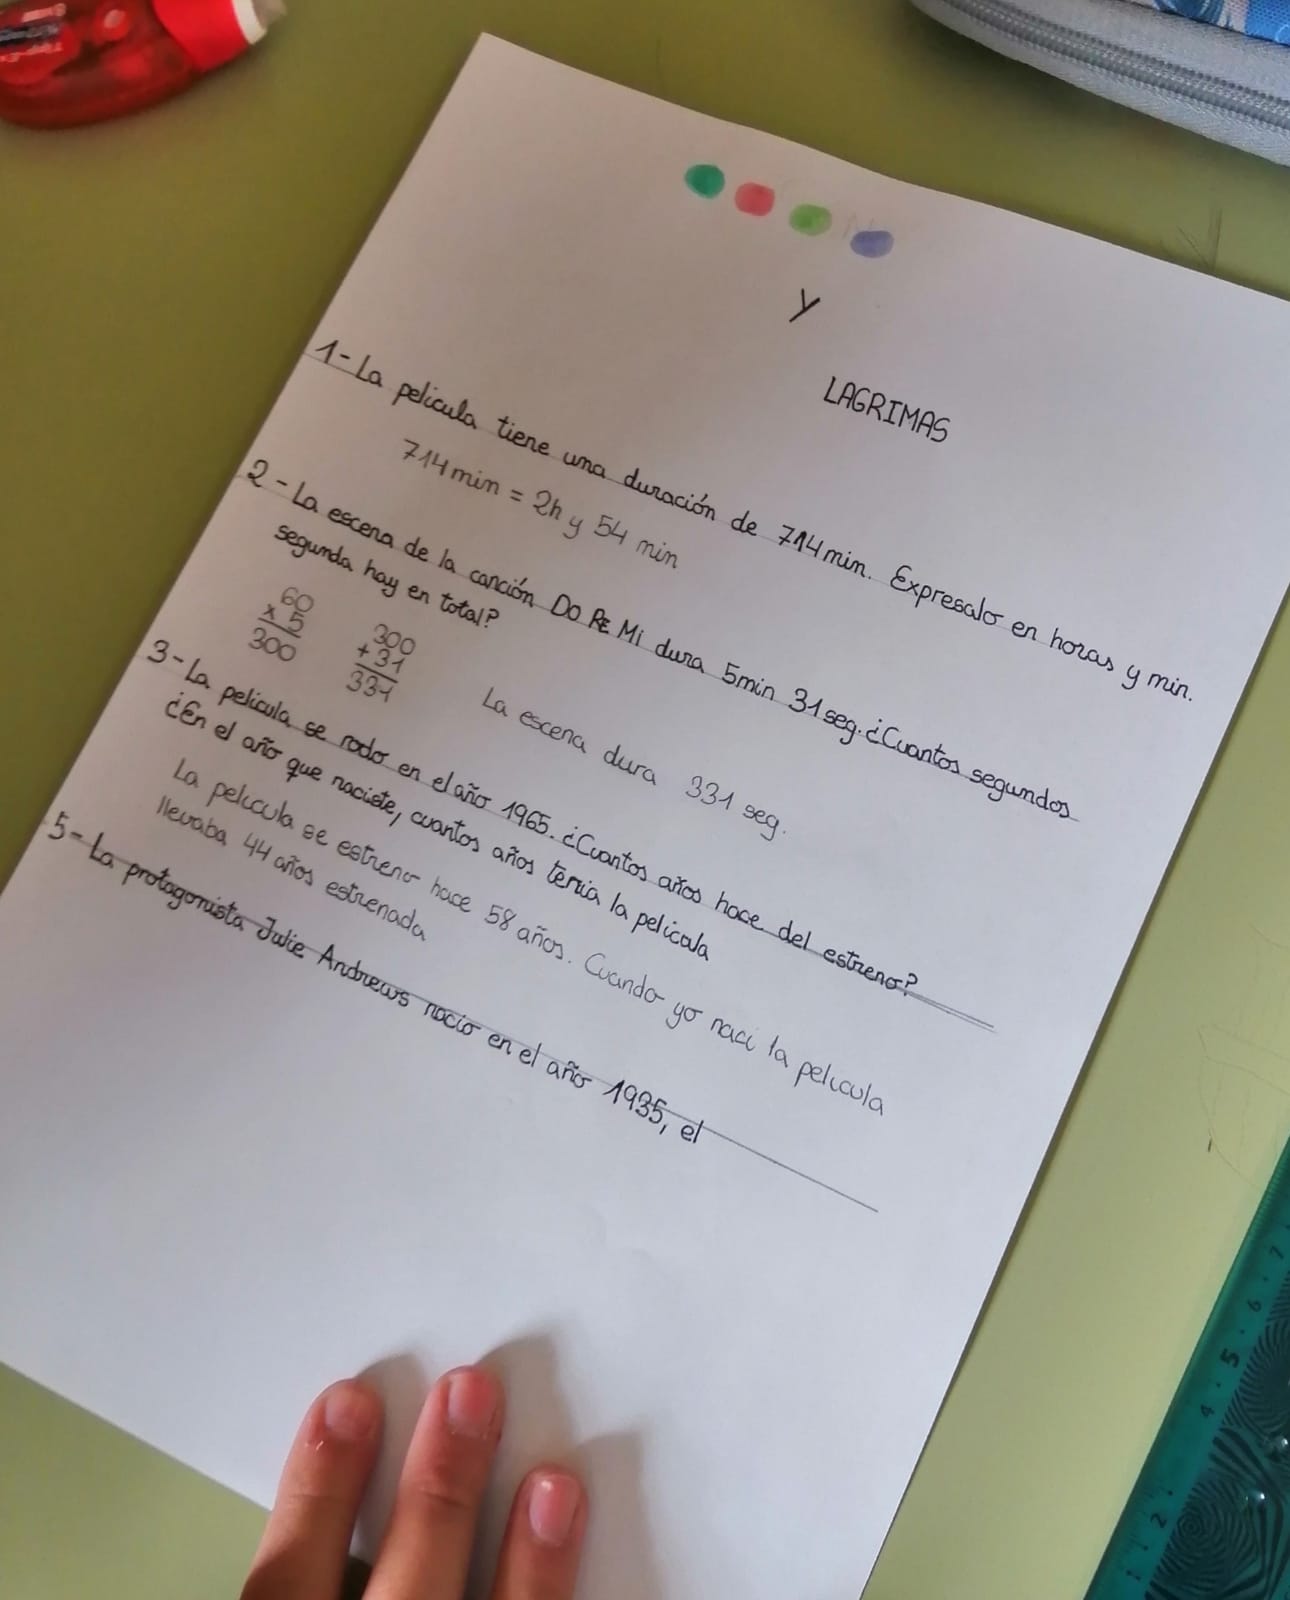 Y
LAGRIMAS
1-La pelicula tiene una duración de 714min. Expresalo en horas y min.
714min = 2h y 54 min
2-La escena de la canción DO RE Mi dura 5min 31seg. ¿Cuantos segundos
segunda hay en total?
60
x 5
300
300
+31
331
La escena dura 331 seg.
3-La pelicula se rodo en el año 1965. ¿Cuantos años hace del estreno?
¿En el año que naciste, cuantos años tenia la pelicula
La pelicula se estreno hace 58 años. Cuando yo naci la pelicula
llevaba 44 años estrenada
5-La protagonista Julie Andrews nacio en el año 1935, el
4 5 6 7
1 2